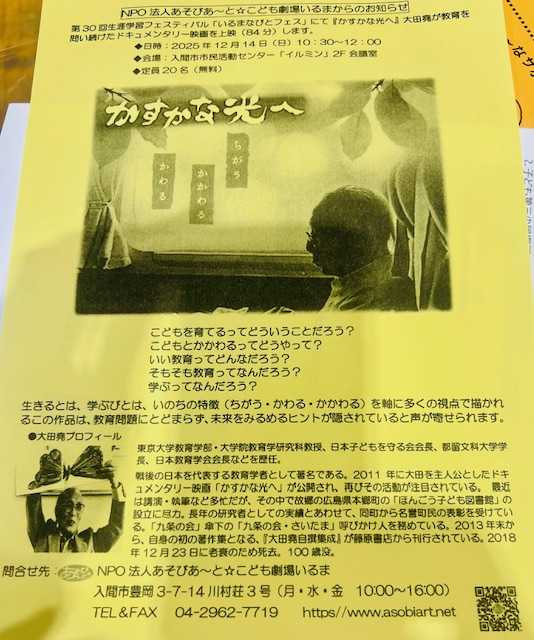 NPO法人あそびあ～と☆こども劇場いるまからのお知らせ
第30回生涯学習フェスティバル「いるまなびとフェス」にて『かすかな光へ』大田堯が教育を
問い続けたドキュメンタリー映画を上映（84分）します。
◆日時：2025年12月14日（日）10：30～12：00
◆会場：入間市市民活動センター「イルミン」2F会議室
◆定員20名（無料）
かすかな光へ
ちがう
かかわる
かわる
こどもを育てるってどういうことだろう？
こどもとかかわるってどうやって？
いい教育ってどんなだろう？
そもそも教育ってなんだろう？
学ぶってなんだろう？
生きるとは、学ぶびとは、いのちの特徴（ちがう・かわる・かかわる）を軸に多くの視点で描かれ
るこの作品は、教育問題にとどまらず、未来をみるめるヒントが隠されていると声が寄せられます。
●大田堯プロフィール
東京大学教育学部・大学院教育学研究科教授、日本子どもを守る会会長、都留文科大学学
長、日本教育学会会長などを歴任。
戦後の日本を代表する教育学者として著名である。2011年に大田を主人公としたドキ
ュメンタリー映画「かすかな光へ」が公開され、再びその活動が注目されている。 最近
は講演・執筆など多忙だが、その中で故郷の広島県本郷町の「ほんごう子ども図書館」の
設立に尽力。長年の研究者としての実績とあわせて、同町から名誉町民の表彰を受けてい
る。「九条の会」傘下の「九条の会・さいたま」呼びかけ人を務めている。2013年末か
ら、自身の初の著作集となる、『大田堯自撰集成』が藤原書店から刊行されている。2018
年12月23日に老衰のため死去。100歳没。
問合せ先：
NPO法人あそびあ～と☆こども劇場いるま
入間市豊岡3-7-14川村荘3号（月・水・金 10:00～16:00）
TEL＆FAX 04-2962-7719 https//www.asobiart.net